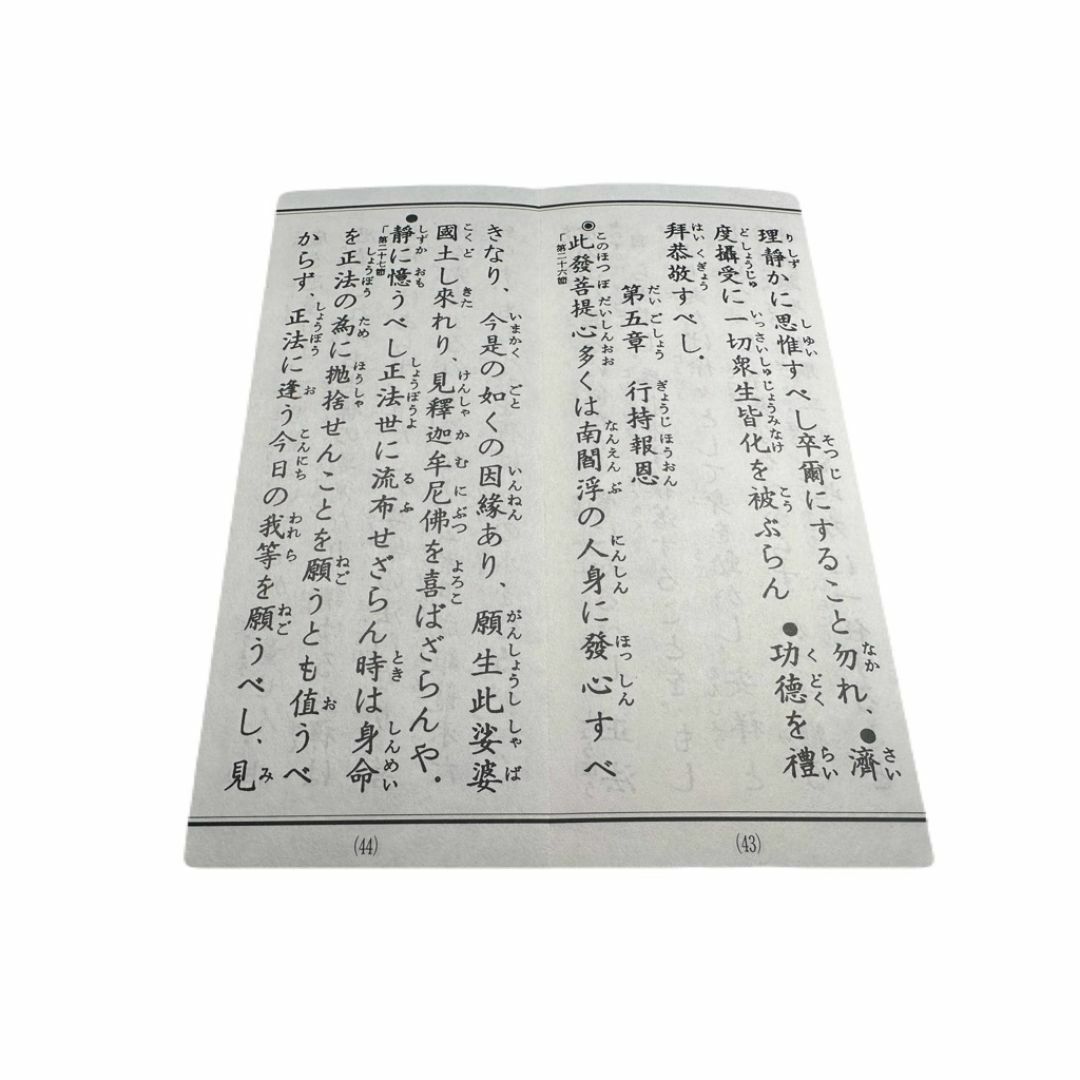 理静かに思惟すべし卒爾にすること勿れ、●濟
度攝受に一切衆生皆化を被ぶらん ●功德を禮
拜恭敬すべし.
第五章 行持報恩
◉此發菩提心多くは南閻浮の人身に發心すべ
「第二十六節
きなり、今是の如くの因緣あり、願生此娑婆
國土し來れり、見釋迦牟尼佛を喜ばざらんや.
●靜に憶うべし正法世に流布せざらん時は身命
「第二十七節
を正法の為に抛捨せんことを願うとも値うべ
からず、正法に逢う今日の我等を願うべし、見
(43)
(44)